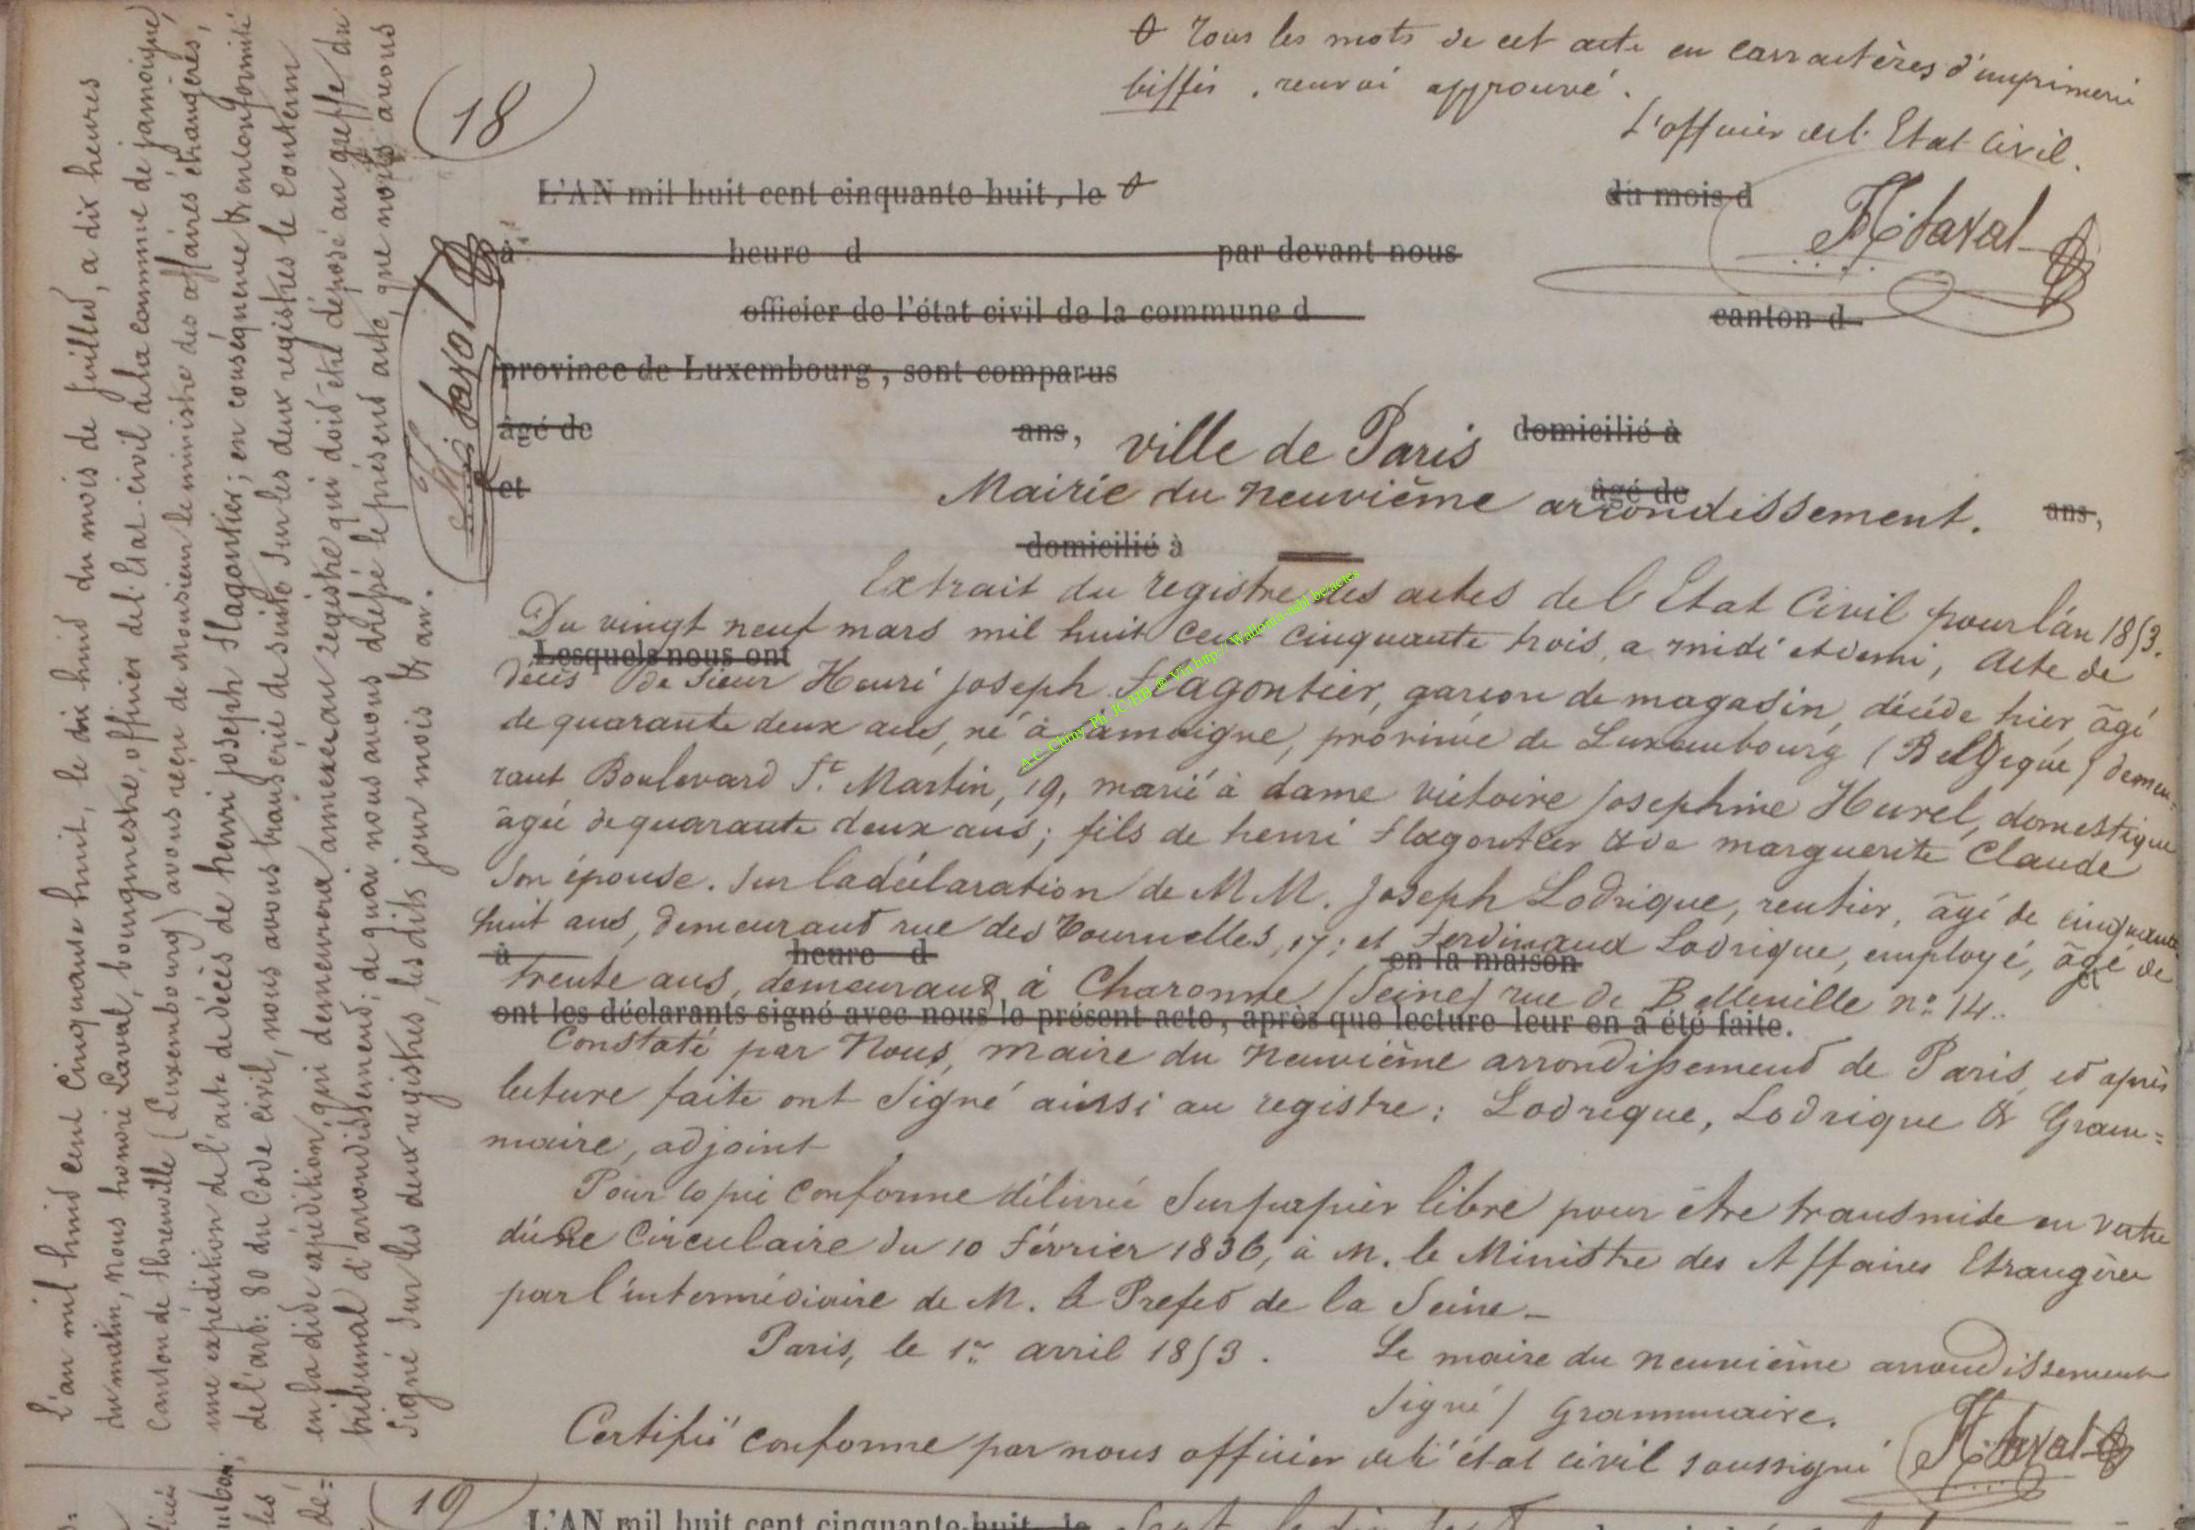 18
ꝋ Tous les mots de cet acte en carractères d'imprimerie
biffés, renvoi approuvé.
L'officier de l'Etat civil.
H. Laval
L'AN mil huit cent cinquante huit, le ꝋ du mois d
à heure d par devant nous
officier de l'état civil de la commune d canton d
province de Luxembourg, sont comparus
âgé de ans, domicilié à
ville de Paris
et âgé de ans,
Mairie du neuvième arrondissement.
domicilié à
Extrait du registre des actes de l'Etat Civil pour l'an 1853.
Du vingt neuf mars mil huit cent cinquante trois, a midi et demi, Acte de
Lesquels nous ont
décès de Sieur Henri joseph Flagontier, garçon de magasin, décédé hier, âgé
de quarante deux ans, né à jamoigne, province de Luxembourg (Belgique) demeu=
rant Boulevard St. Martin, 19, marié à dame victoire josephine Hurel, domestique
âgée de quarante deux ans; fils de henri Flagontier & de marguerite Claude
son épouse. Sur la déclaration de M.M. joseph Lodrigue, rentier, âgé de cinquante
huit ans, demeurant rue des Tournelles, 17; et Ferdinand Lodrigue, employé, âgé de
à heure d en la maison et
trente ans, demeurant à Charonne (Seine) rue de Belleville n° 14.
ont les déclarants signé avec nous le présent acte, après que lecture leur en a été faite.
Constaté par Nous, maire du neuvième arrondissement de Paris, et après
lecture faite ont signé ainsi au registre: Lodrigue, Lodrigue & Gram=
maire, adjoint
Pour copie conforme délivrée sur papier libre pour être transmise en vertu
d'une Circulaire du 10 février 1836, à M. le Ministre des Affaires Etrangères
par l'intermédiaire de M. le Prefet de la Seine.
Paris, le 1er avril 1853. Le maire du neuvième arrondissement
Signé) Grammaire.
Certifié conforme par nous officier de l'état civil soussigné H. Laval
L'an mil huit cent cinquante huit, le dix huit du mois de juillet, a dix heures
du matin, nous honoré Laval, bourgmestre, officier de l'Etat-civil de la commune de jamoigne,
Canton de Florenville (Luxembourg) avons reçu de monsieur le ministre des affaires étrangères,
une expédition de l'acte de décès de henri joseph Flagontier; en conséquence & en conformité
de l'art: 80 du Code civil, nous avons transcrit de suite sur les deux registres le contenu
en la dite expédition, qui demeurera annexée au registre qui doit être déposé au greffe du
tribunal d'arrondissement; de quoi nous avons dressé le présent acte, que nous avons
signé sur les deux registres, les dits jour mois & an.
H. Laval
A.C. Chiny Ph. JC-HB ® Via http://Wallonia-asbl.be/actes
19
L'AN mil huit cent cinquante huit, le